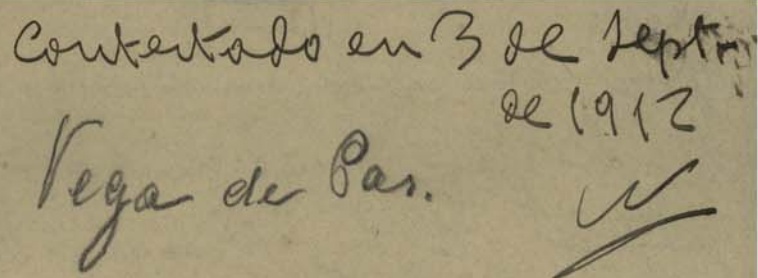 Contestado en 3 de Septe
de 1912
Vega de Pas.